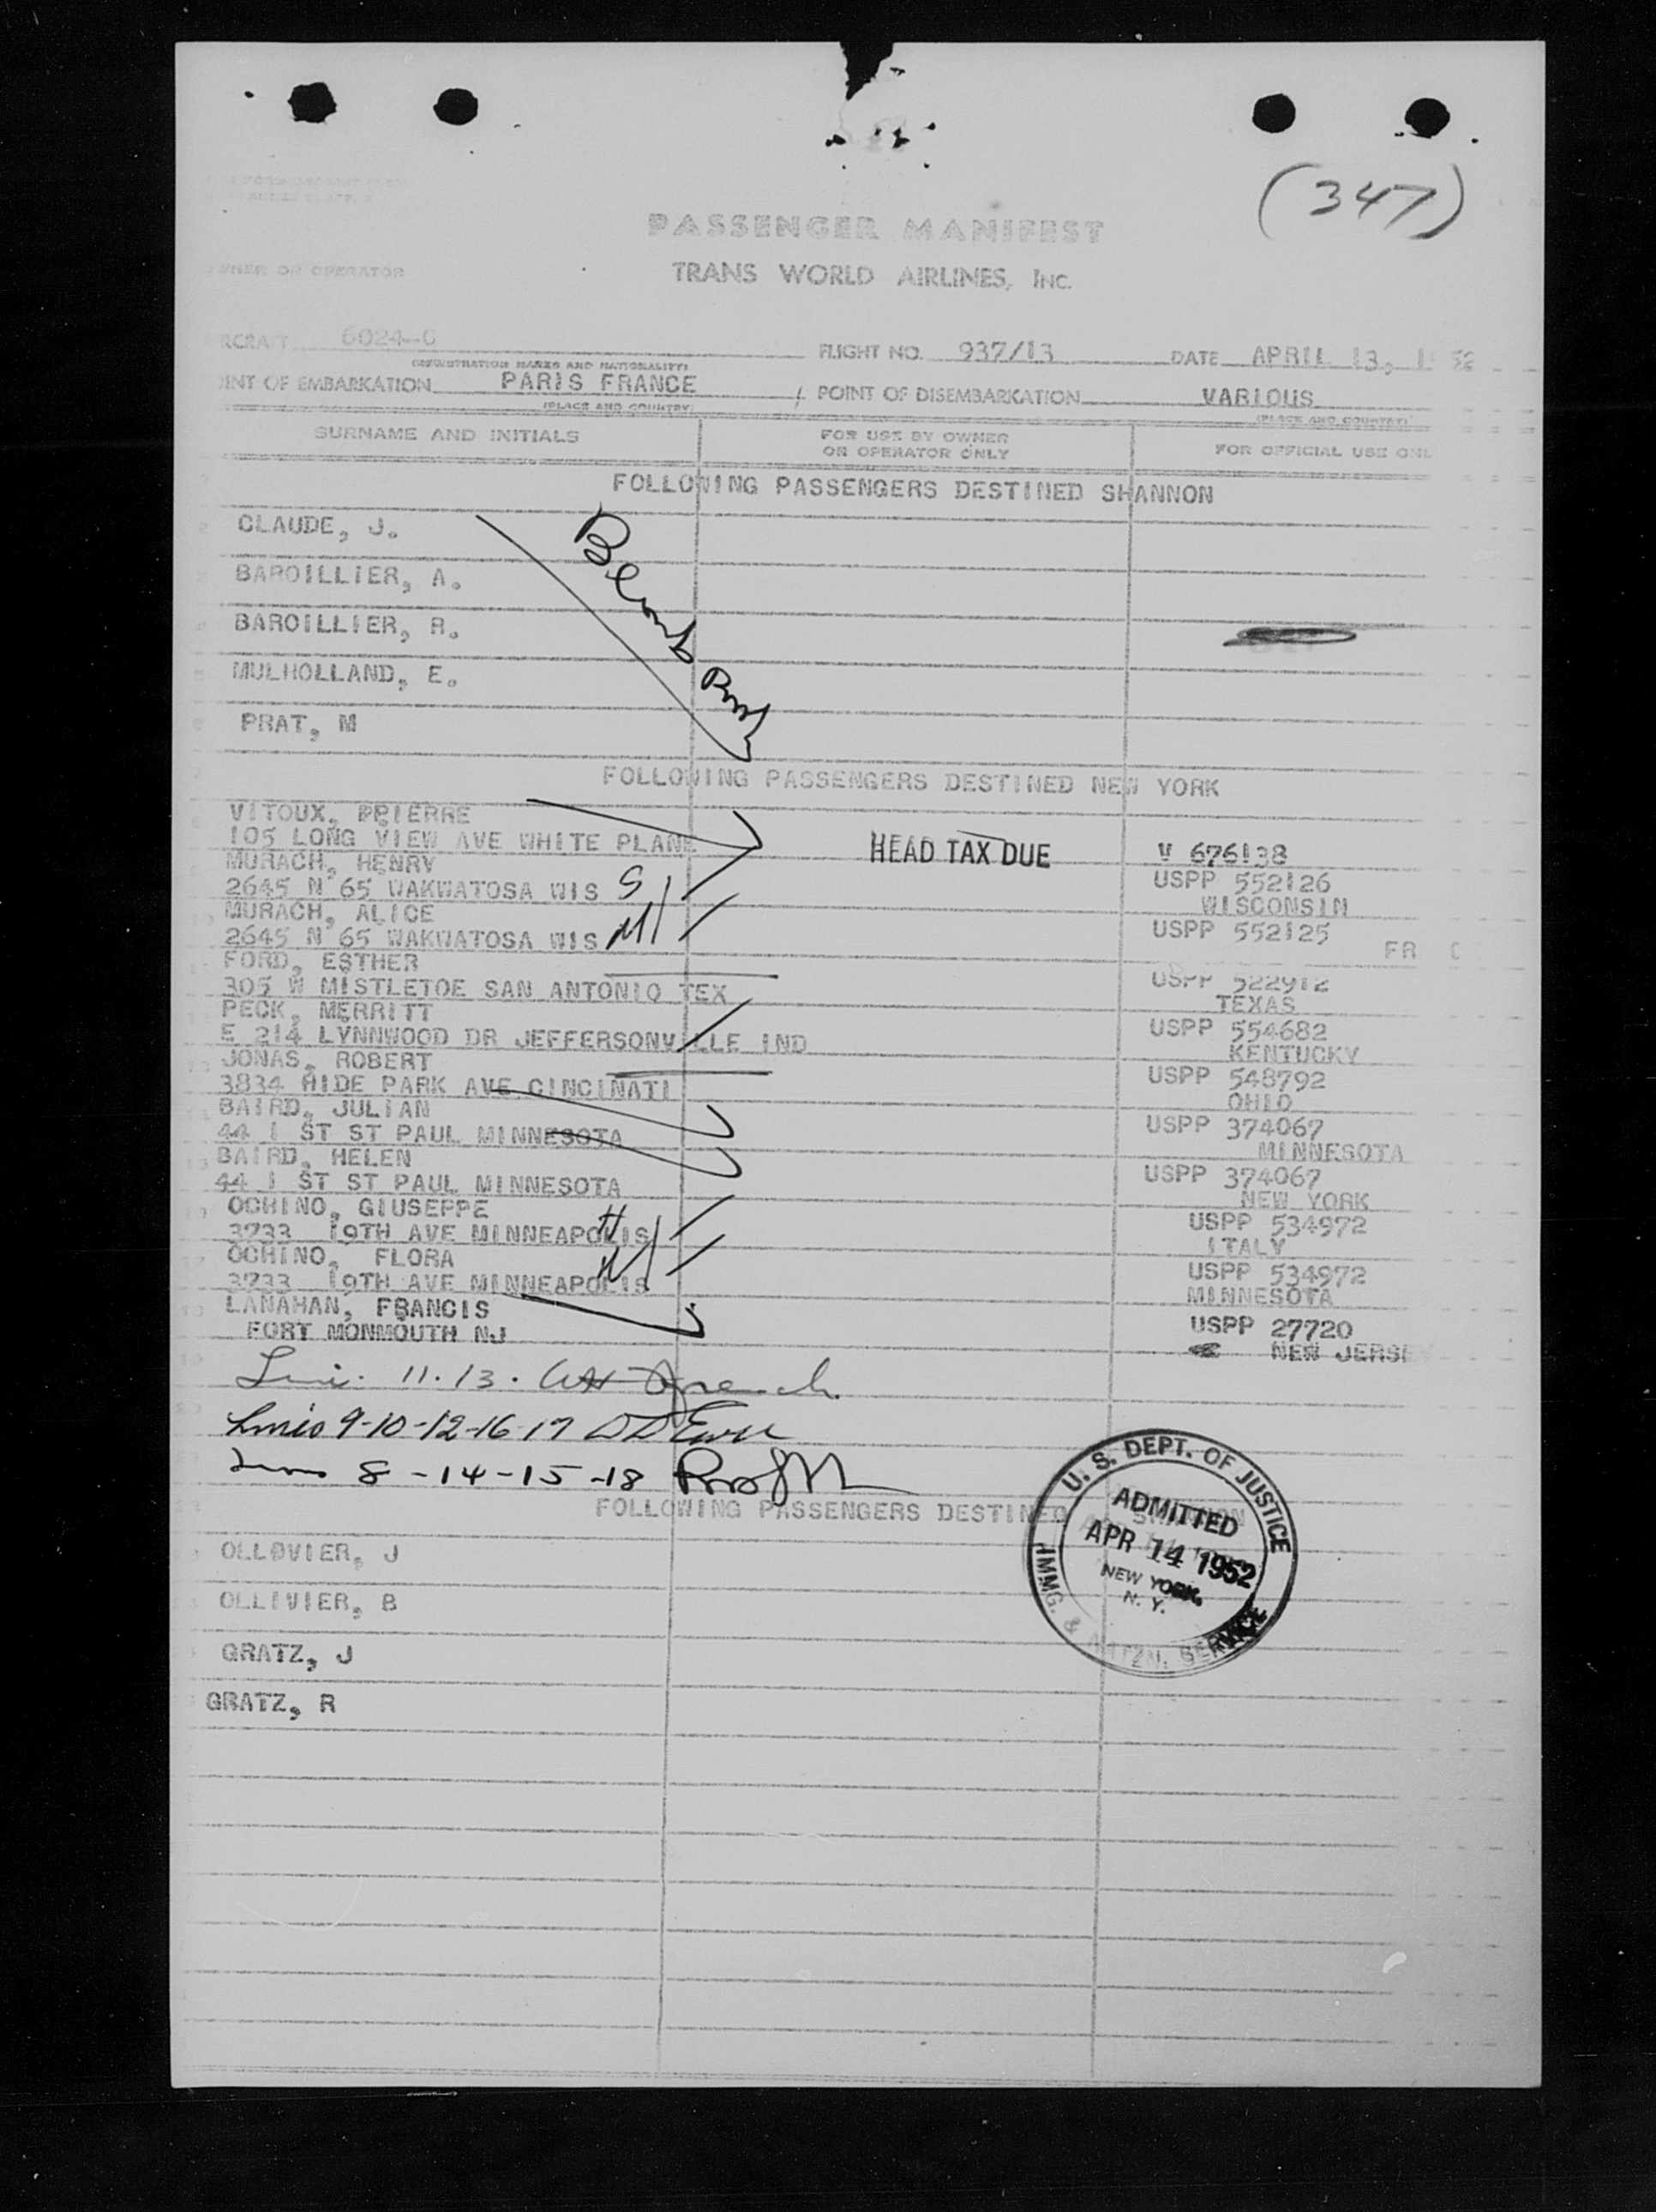 (347)
PASSENGER MANIFEST
OWNER OR OPERATOR
TRANS WORLD AIRLINES, INC.
6024-C FLIGHT NO. 937/13 DATE APRIL 13, 1952
(REGISTRATION MARKS AND NATIONALITY)
POINT OF EMBARKATION PARIS FRANCE POINT OF DISEMBARKATION VARIOUS
(PLACE AND COUNTRY) (PLACE AND COUNTRY)
SURNAME AND INITIALS FOR USE BY OWNER OR OPERATOR ONLY FOR OFFICIAL USE ONL
FOLLOWING PASSENGERS DESTINED SHANNON
CLAUDE, J.
BAROILLIER, A.
BAROILLIER, R.
MULHOLLAND, E.
PRAT, M
FOLLOWING PASSENGERS DESTINED NEW YORK
VITOUX, PPIERRE
105 LONG VIEW AVE WHITE PLANE HEAD TAX DUE V 676138
MURACH, HENRY USPP 552126
2645 N 65 WAKWATOSA WIS S WISCONSIN
MURACH, ALICE USPP 552125
2645 N 65 WAKWATOSA WIS M FR
FORD, ESTHER USPP 522912
305 W MISTLETOE SAN ANTONIO TEX TEXAS
PECK, MERRITT USPP 554682
E 214 LYNNWOOD DR JEFFERSONVILLE IND KENTUCKY
JONAS, ROBERT USPP 548792
3834 HIDE PARK AVE CINCINATI OHIO
BAIRD, JULIAN USPP 374067
44 1 ST ST PAUL MINNESOTA MINNESOTA
BAIRD, HELEN USPP 374067
44 1 ST ST PAUL MINNESOTA NEW YORK
OCHINO, GIUSEPPE USPP 534972
3733 19TH AVE MINNEAPOLIS ITALY
OCHINO, FLORA USPP 534972
3733 19TH AVE MINNEAPOLIS MINNESOTA
LANAHAN, FRANCIS USPP 27720
FORT MONMOUTH NJ NEW JERSE
11.13.
9-10-12-16-17
8-14-15-18
FOLLOWING PASSENGERS DESTINED SHANNON
OLLOVIER, J
OLLIVIER, B
GRATZ, J
GRATZ, R
U. S. DEPT. OF JUSTICE
ADMITTED
APR 14 1952
NEW YORK,
N. Y.
IMMG. & NATZN. SERVICE